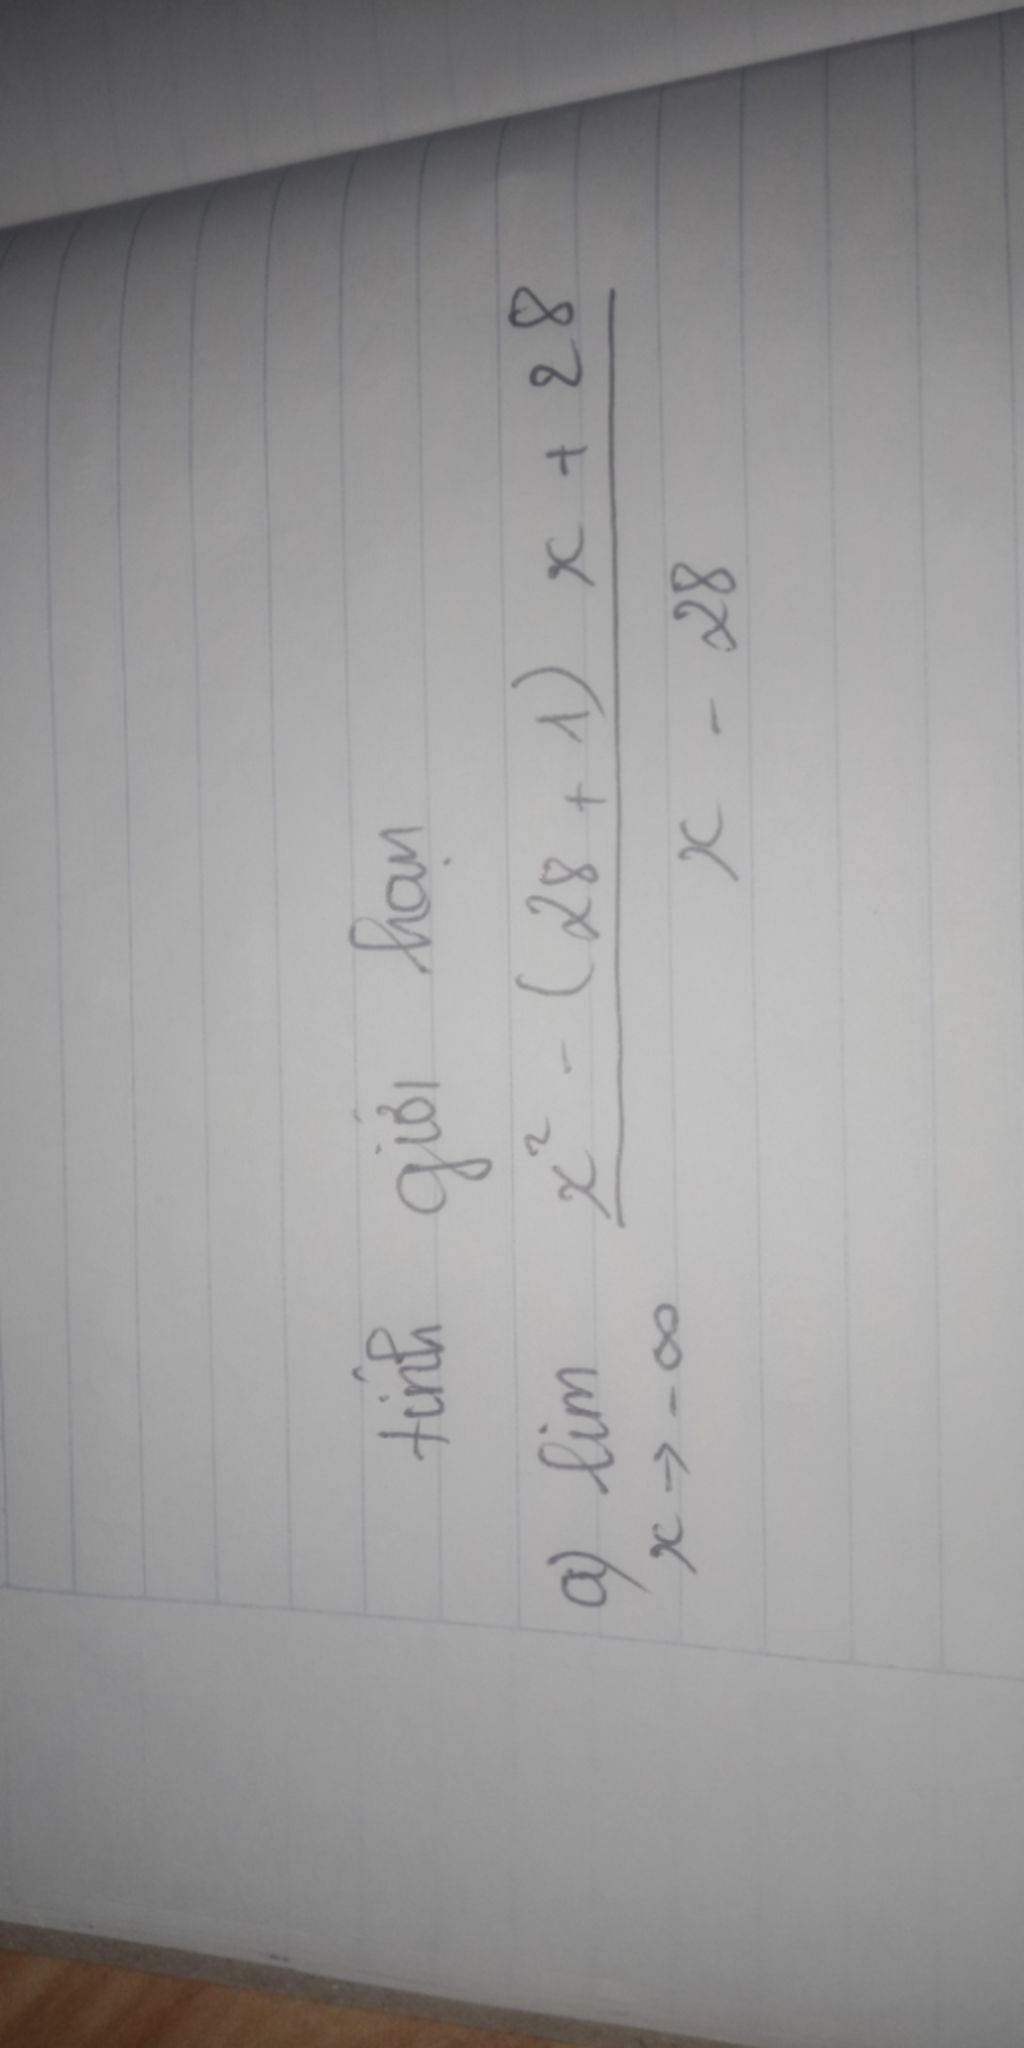 tính giới hạn
a) lim x² - (28 + 1) x + 28
x → -∞ x - 28